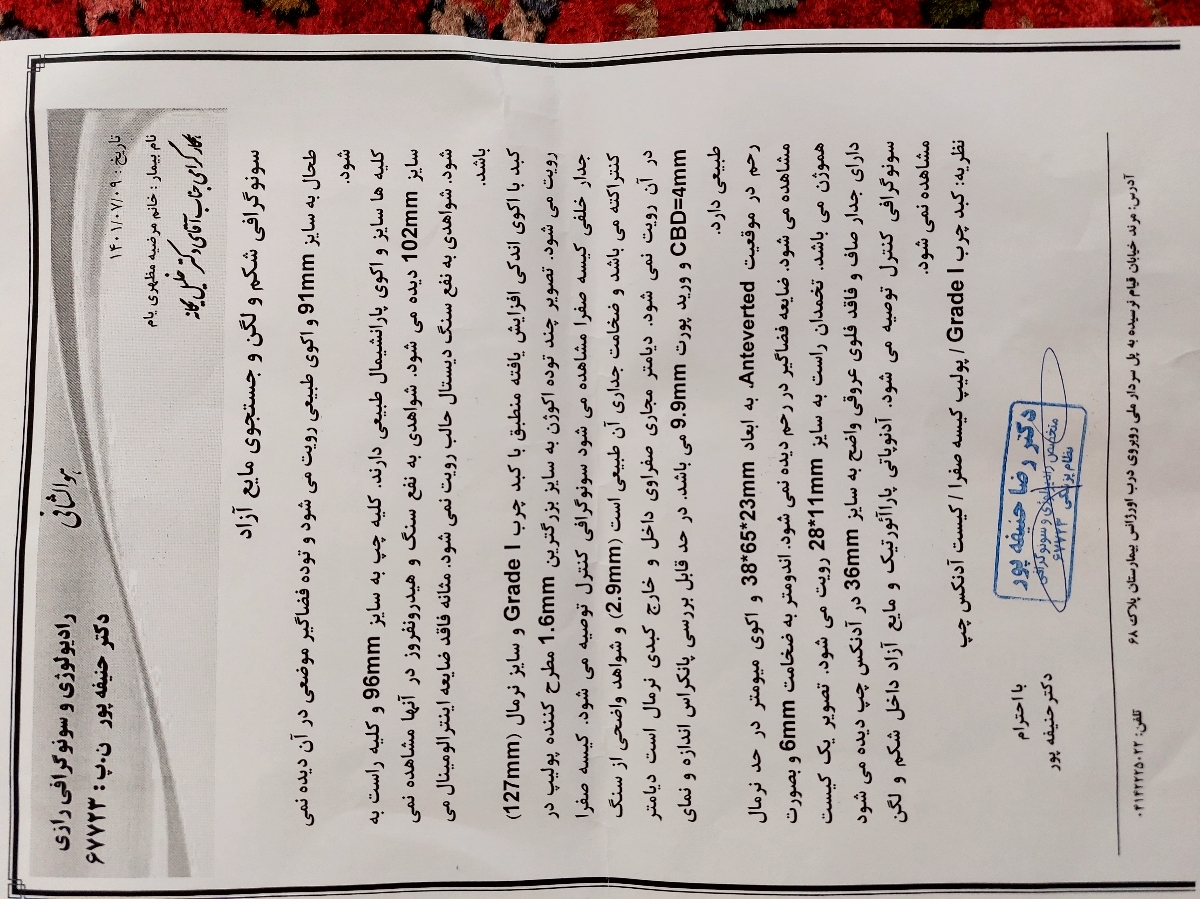 هوالشافی
رادیولوژی و سونوگرافی رازی
دکتر حنیفه پور ن.پ: ۶۷۷۲۳
تاریخ: ۱۴۰۱/۰۷/۰۹
نام بیمار: خانم مرضیه مظهری یام
همکار گرامی جناب آقای دکتر خلیل یگانه
سونوگرافی شکم و لگن و جستجوی مایع آزاد
طحال به سایز 91mm و اکوی طبیعی رویت می شود و توده فضاگیر موضعی در آن دیده نمی
شود.
کلیه ها سایز و اکوی پارانشیمال طبیعی دارند. کلیه چپ به سایز 96mm و کلیه راست به
سایز 102mm دیده می شود. شواهدی به نفع سنگ و هیدرونفروز در آنها مشاهده نمی
شود. شواهدی به نفع سنگ دیستال حالب رویت نمی شود. مثانه فاقد ضایعه اینترالومینال می
باشد.
کبد با اکوی اندکی افزایش یافته منطبق با کبد چرب Grade I و سایز نرمال (127mm)
رویت می شود. تصویر چند توده اکوژن به سایز بزرگترین 1.6mm مطرح کننده پولیپ در
جدار خلفی کیسه صفرا مشاهده می شود سونوگرافی کنترل توصیه می شود. کیسه صفرا
کنتراکته می باشد و ضخامت جداری آن طبیعی است (2.9mm) و شواهد واضحی از سنگ
در آن رویت نمی شود. دیامتر مجاری صفراوی داخل و خارج کبدی نرمال است دیامتر
CBD=4mm و ورید پورت 9.9mm می باشد. در حد قابل بررسی پانکراس اندازه و نمای
طبیعی دارد.
رحم در موقعیت Anteverted، به ابعاد 38*65*23mm و اکوی میومتر در حد نرمال
مشاهده می شود. ضایعه فضاگیر در رحم دیده نمی شود. اندومتر به ضخامت 6mm و بصورت
هموژن می باشد. تخمدان راست به سایز 28*11mm رویت می شود. تصویر یک کیست
دارای جدار صاف و فاقد فلوی عروقی واضح به سایز 36mm در آدنکس چپ دیده می شود
سونوگرافی کنترل توصیه می شود. آدنوپاتی پاراآئورتیک و مایع آزاد داخل شکم و لگن
مشاهده نمی شود.
نظریه: کبد چرب Grade I / پولیپ کیسه صفرا / کیست آدنکس چپ
با احترام
دکتر حنیفه پور
دکتر رضا حنیفه پور
متخصص رادیولوژی و سونوگرافی
نظام پزشکی ۶۷۷۲۳
آدرس: مرند خیابان قیام نرسیده به پل سردار ملی روبروی درب اورژانس بیمارستان پلاک ۶۸
تلفن: ۰۴۱۴۲۲۲۵۰۲۲